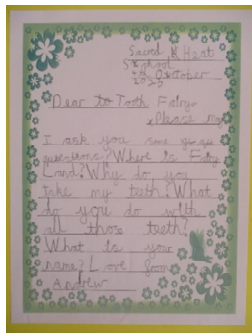 Sacred Heart
School
October
Dear to Tooth Fairy
Please
I ask you some
questions? Where is Fairy
Land? Why do you
take my teeth? What
do you do with
all those teeth?
What is your
name? Love from
Andrew